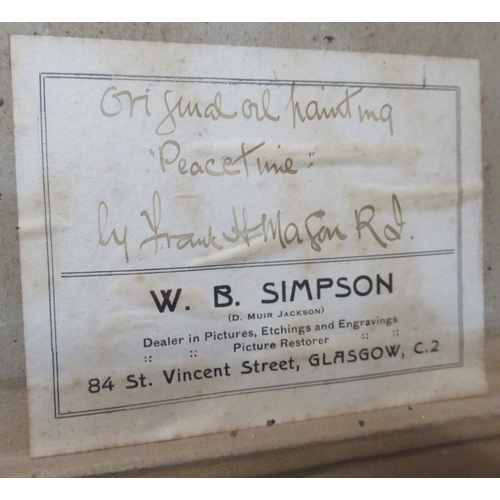 Original oil painting
"Peacetime"
by Frank H Mason R.I.
W. B. SIMPSON
(D. MUIR JACKSON)
Dealer in Pictures, Etchings and Engravings
:: :: Picture Restorer :: ::
84 St. Vincent Street, GLASGOW, C.2